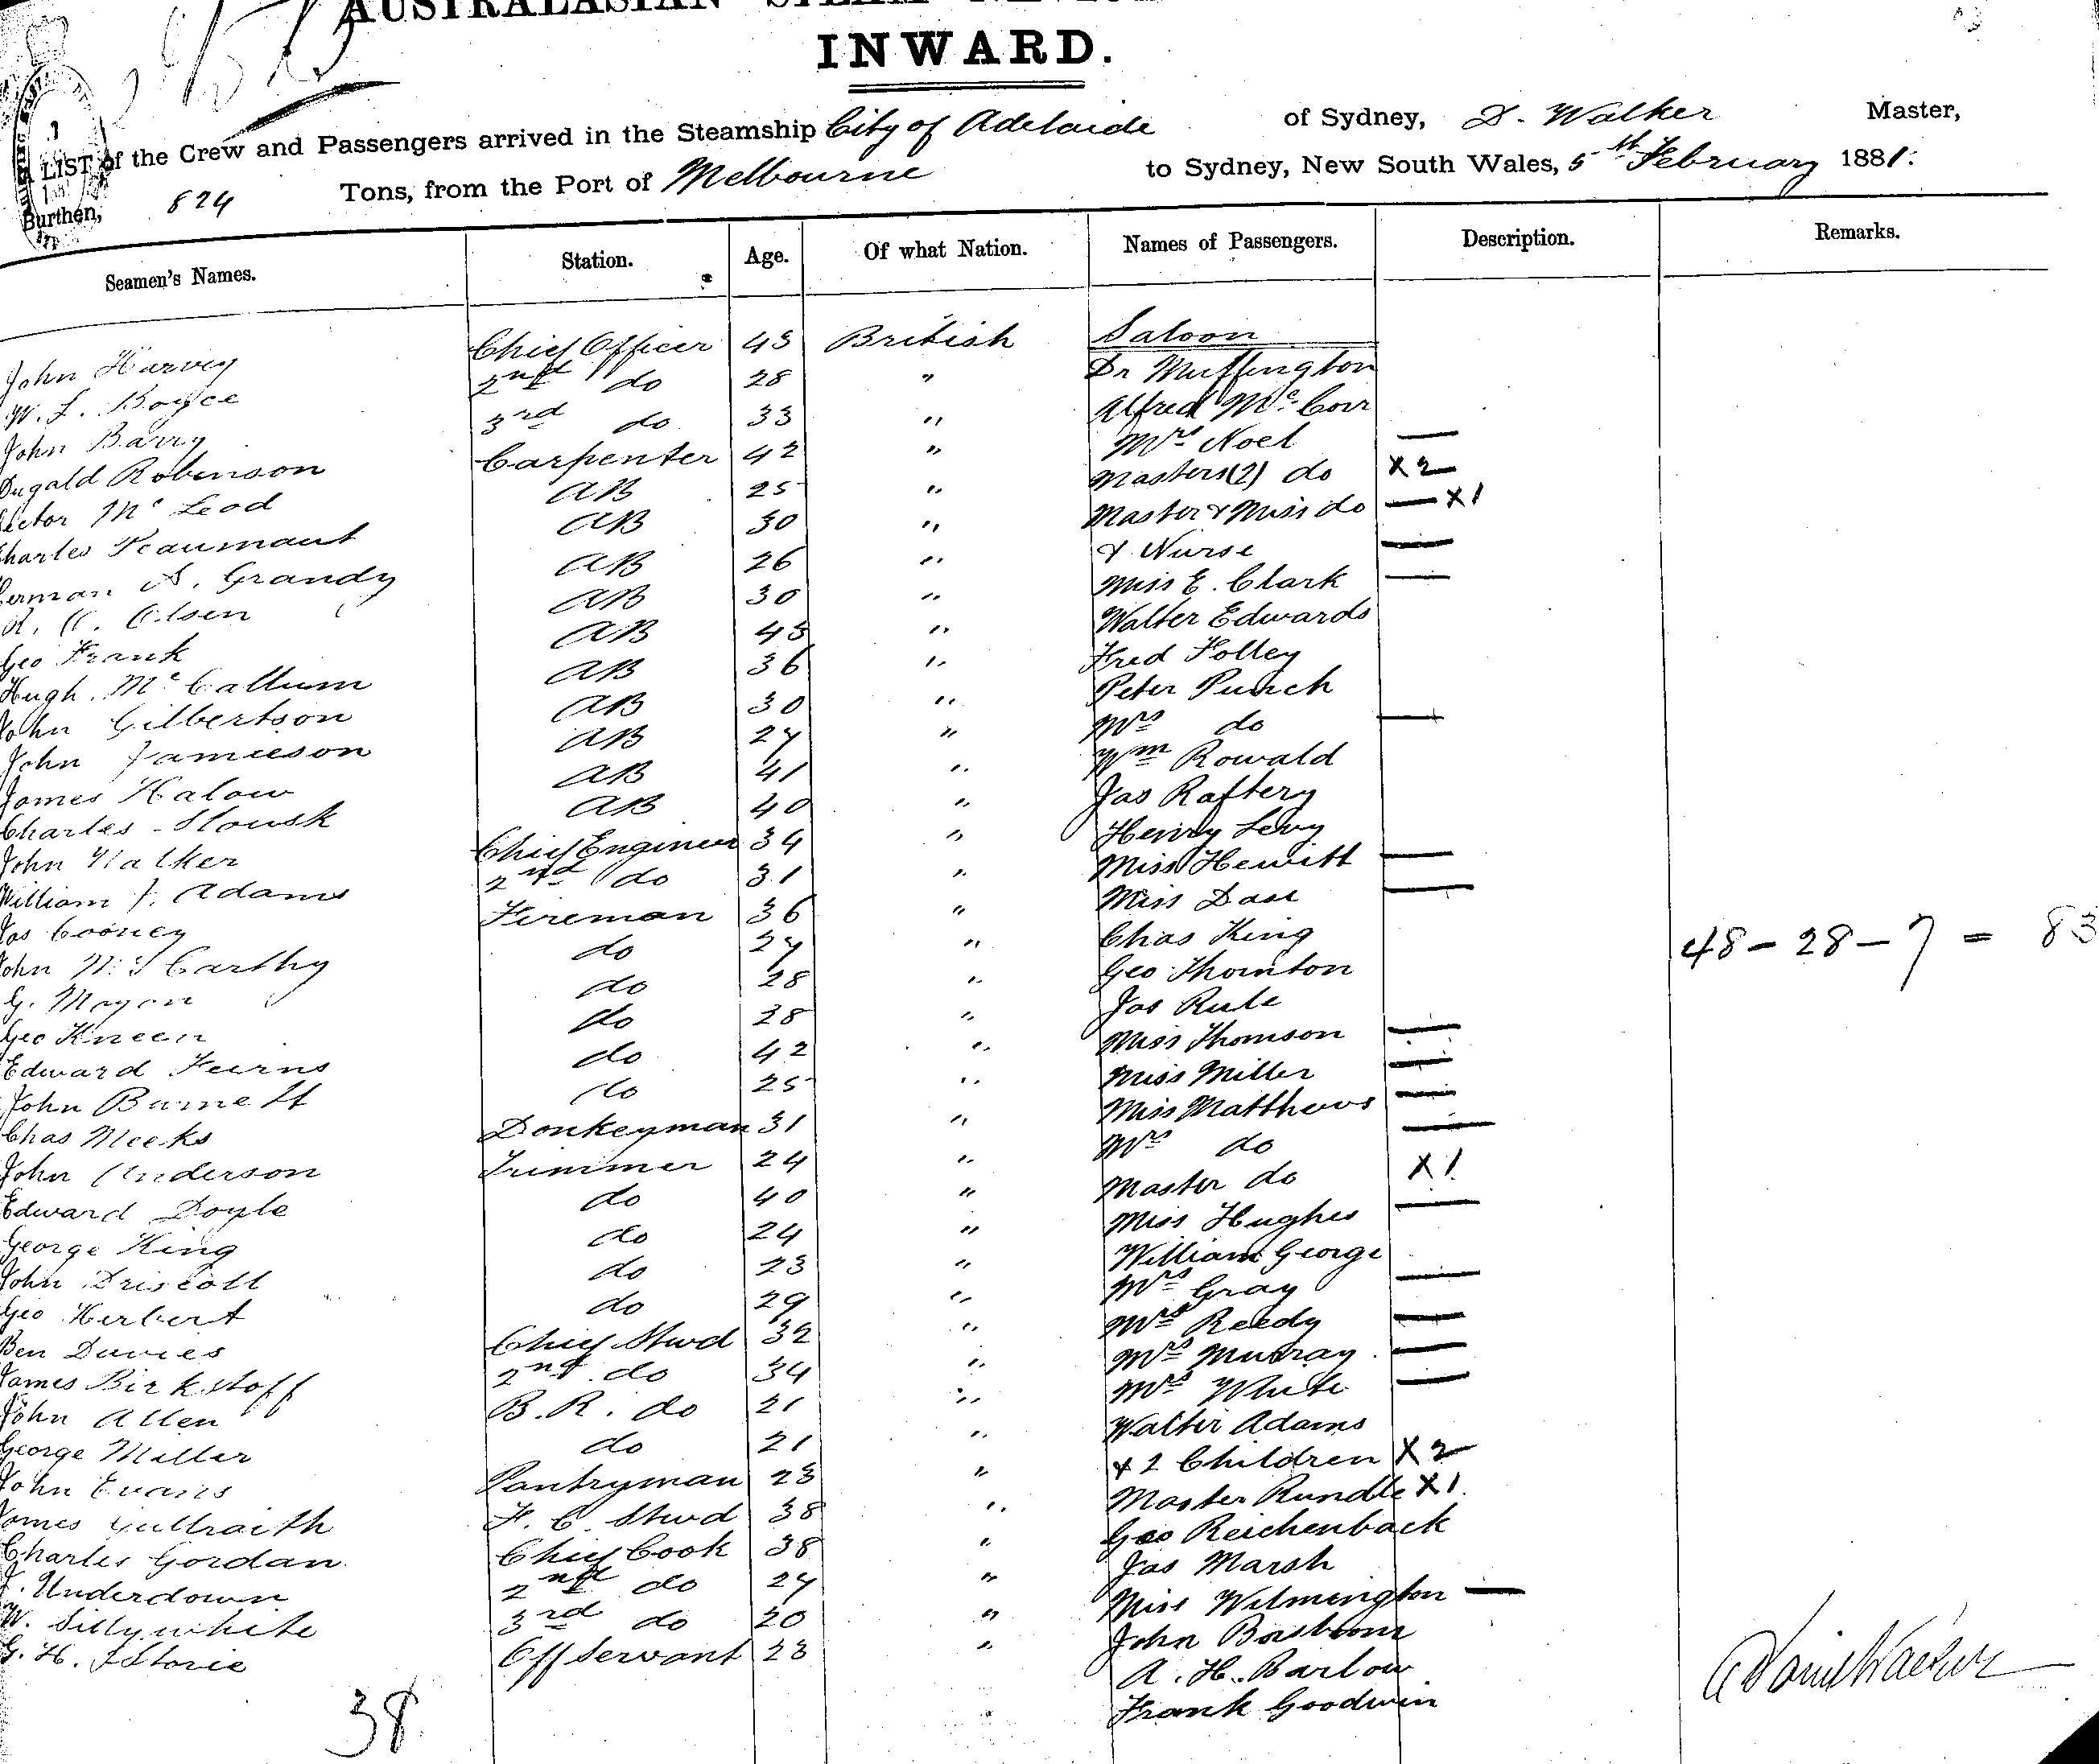 AUSTRALASIAN STEAM
INWARD.
LIST of the Crew and Passengers arrived in the Steamship City of Adelaide of Sydney, D. Walker Master,
Burthen, 824 Tons, from the Port of Melbourne to Sydney, New South Wales, 5th February 1881.
Seamen's Names. Station. Age. Of what Nation. Names of Passengers. Description. Remarks.
Saloon
John Harvey Chief Officer 43 British Dr Muffington
W. L. Boyce 2nd do 28 " Alfred McCorr
John Barry 3rd do 33 " Mrs Noel —
Dugald Robinson Carpenter 42 " Masters (2) do X2
McLeod AB 25 " Master & Miss do — X1
Charles AB 30 " & Nurse —
Grandy AB 26 " Miss E. Clark —
Olsen AB 30 " Walter Edwards
Geo Frank AB 43 " Fred Folley
Hugh McCallum AB 36 " Peter Punch
John Gilbertson AB 30 " Mrs do —
John Jamieson AB 27 " Wm Rowald
James Halow AB 41 " Jas Raftery
Charles AB 40 " Henry Levy
John Walker Chief Engineer 34 " Miss Hewitt —
William J. Adams 2nd do 31 " Miss —
Jas Cooney Fireman 36 " Chas King
John McCarthy do 27 " Geo Thornton
G. do 28 " Jas Rule
Geo Kneen do 28 " Miss Thomson —
Edward Fearns do 42 " Miss Miller —
John Burnett do 25 " Miss Matthews —
Chas Meeks Donkeyman 31 " Mrs do —
John Anderson Trimmer 24 " Master do X1
Edward Doyle do 40 " Miss Hughes —
George King do 24 " William George
John Driscoll do 23 " Mrs Gray —
Geo Herbert do 29 " Mrs Reedy —
Ben Davies Chief Stwd 32 " Mrs Murray —
James Birkstoff 2nd do 34 " Mrs White —
John Allen B.R. do 21 " Walter Adams
George Miller do 21 " & 2 Children X2
John Evans Pantryman 23 " Master Rundle X1
James F. C. Stwd 38 " Geo Reichenback
Charles Gordan Chief Cook 38 " Jas Marsh
J. Underdown 2nd do 27 " Miss Wilmington —
W. Sillywhite 3rd do 20 " John
G. H. Storie Off Servant 23 " A. H. Barlow
Frank Goodwin
38
48 - 28 - 7 = 83